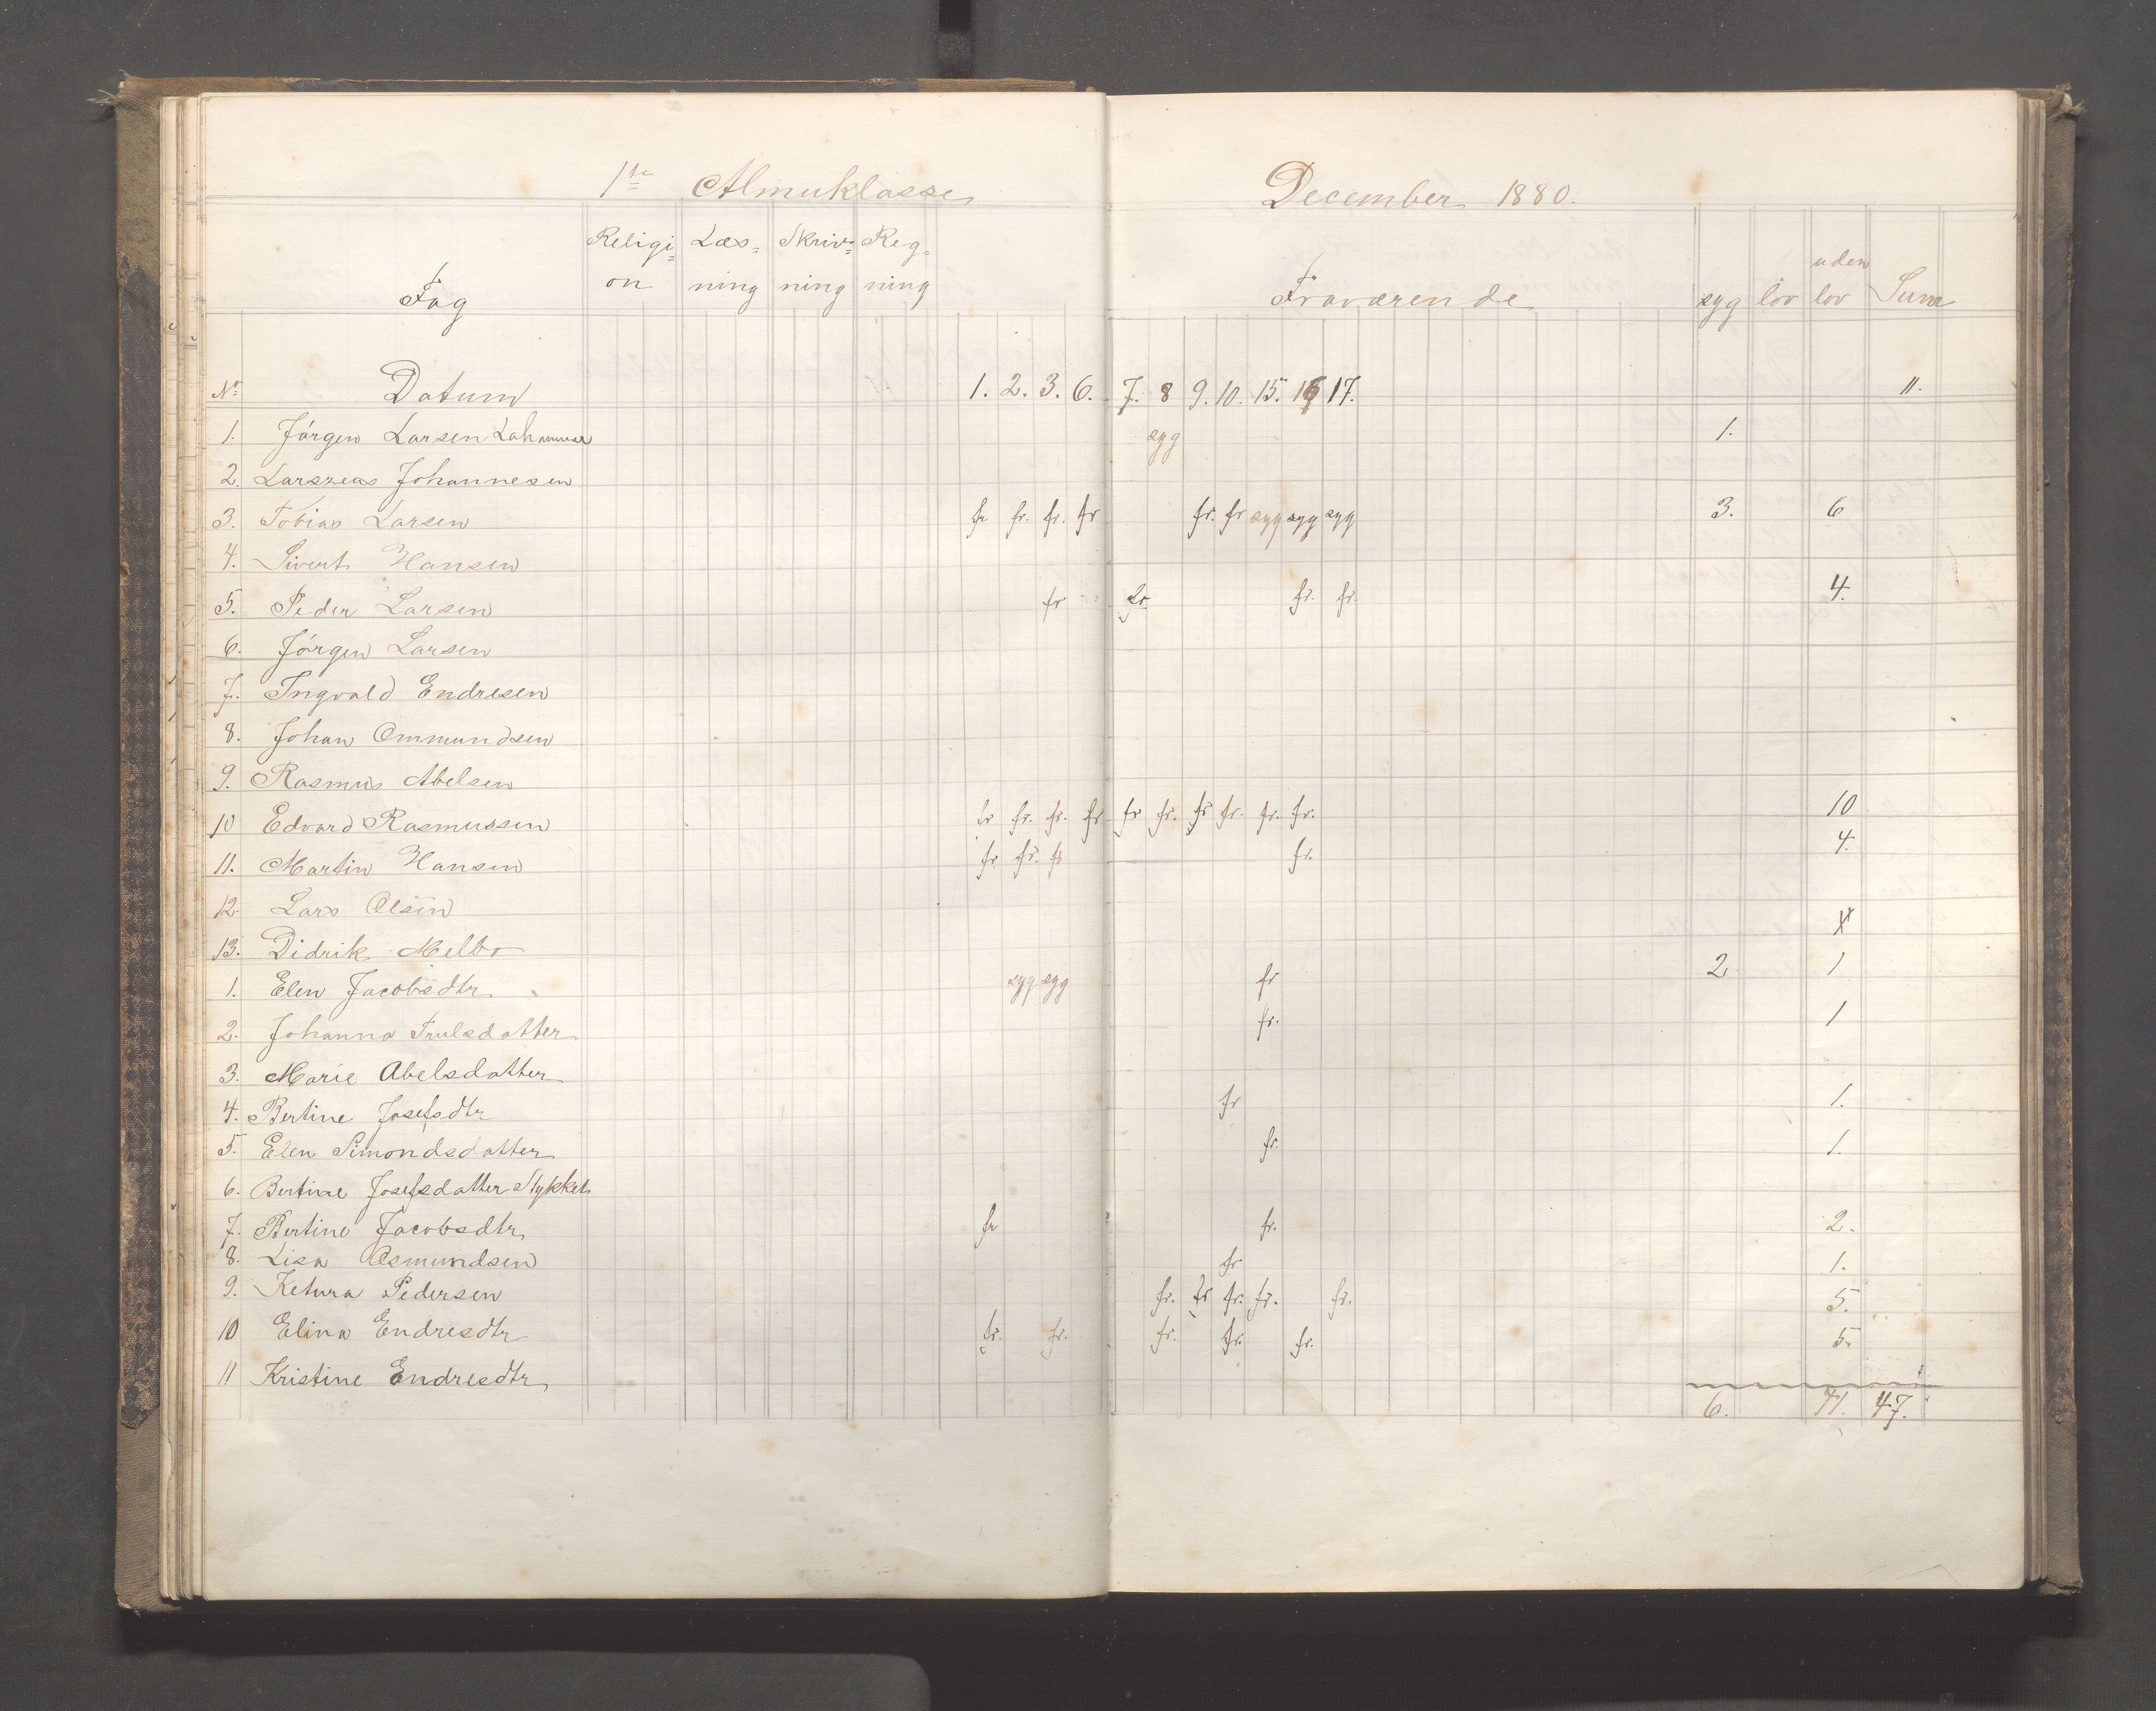 1ste Almuklasse December 1880.
Fag Religi= on Læs= ning Skriv= ning Reg= ning Fraværende syg lov uden lov Sum
Nr Datum 1. 2. 3. 6. 7. 8 9. 10. 15. 16 17. 11.
1. Jørgen Larsen Lahammer syg 1.
2. Larszeas Johannesen
3. Tobias Larsen fr fr. fr. fr fr. fr syg syg syg 3. 6
4. Sivert Hansen
5. Peder Larsen fr fr. fr. fr. 4.
6. Jørgen Larsen
7. Ingvald Endresen
8. Johan Ommundsen
9. Rasmus Abelsen
10 Edvard Rasmussen fr fr. fr. fr fr fr. fr fr. fr. fr. 10
11. Martin Hansen fr fr. fr fr. 4.
12. Lars Olsen
13. Didrik Melbo
1. Elen Jacobsdtr. syg syg fr 2. 1
2. Johanna Trulsdatter fr. 1
3. Marie Abelsdatter
4. Bertine Josefsdtr. fr 1.
5. Elen Simondsdatter fr. 1.
6. Bertine Josefsdatter Stykket
7. Bertine Jacobsdtr. fr fr. 2.
8. Lisa Osmundsen fr 1.
9. Ketura Pedersen fr. fr fr. fr. fr. 5.
10 Elina Endresdtr fr. fr. fr. fr. fr. 5.
11 Kristine Endresdtr.
6. 41. 47.